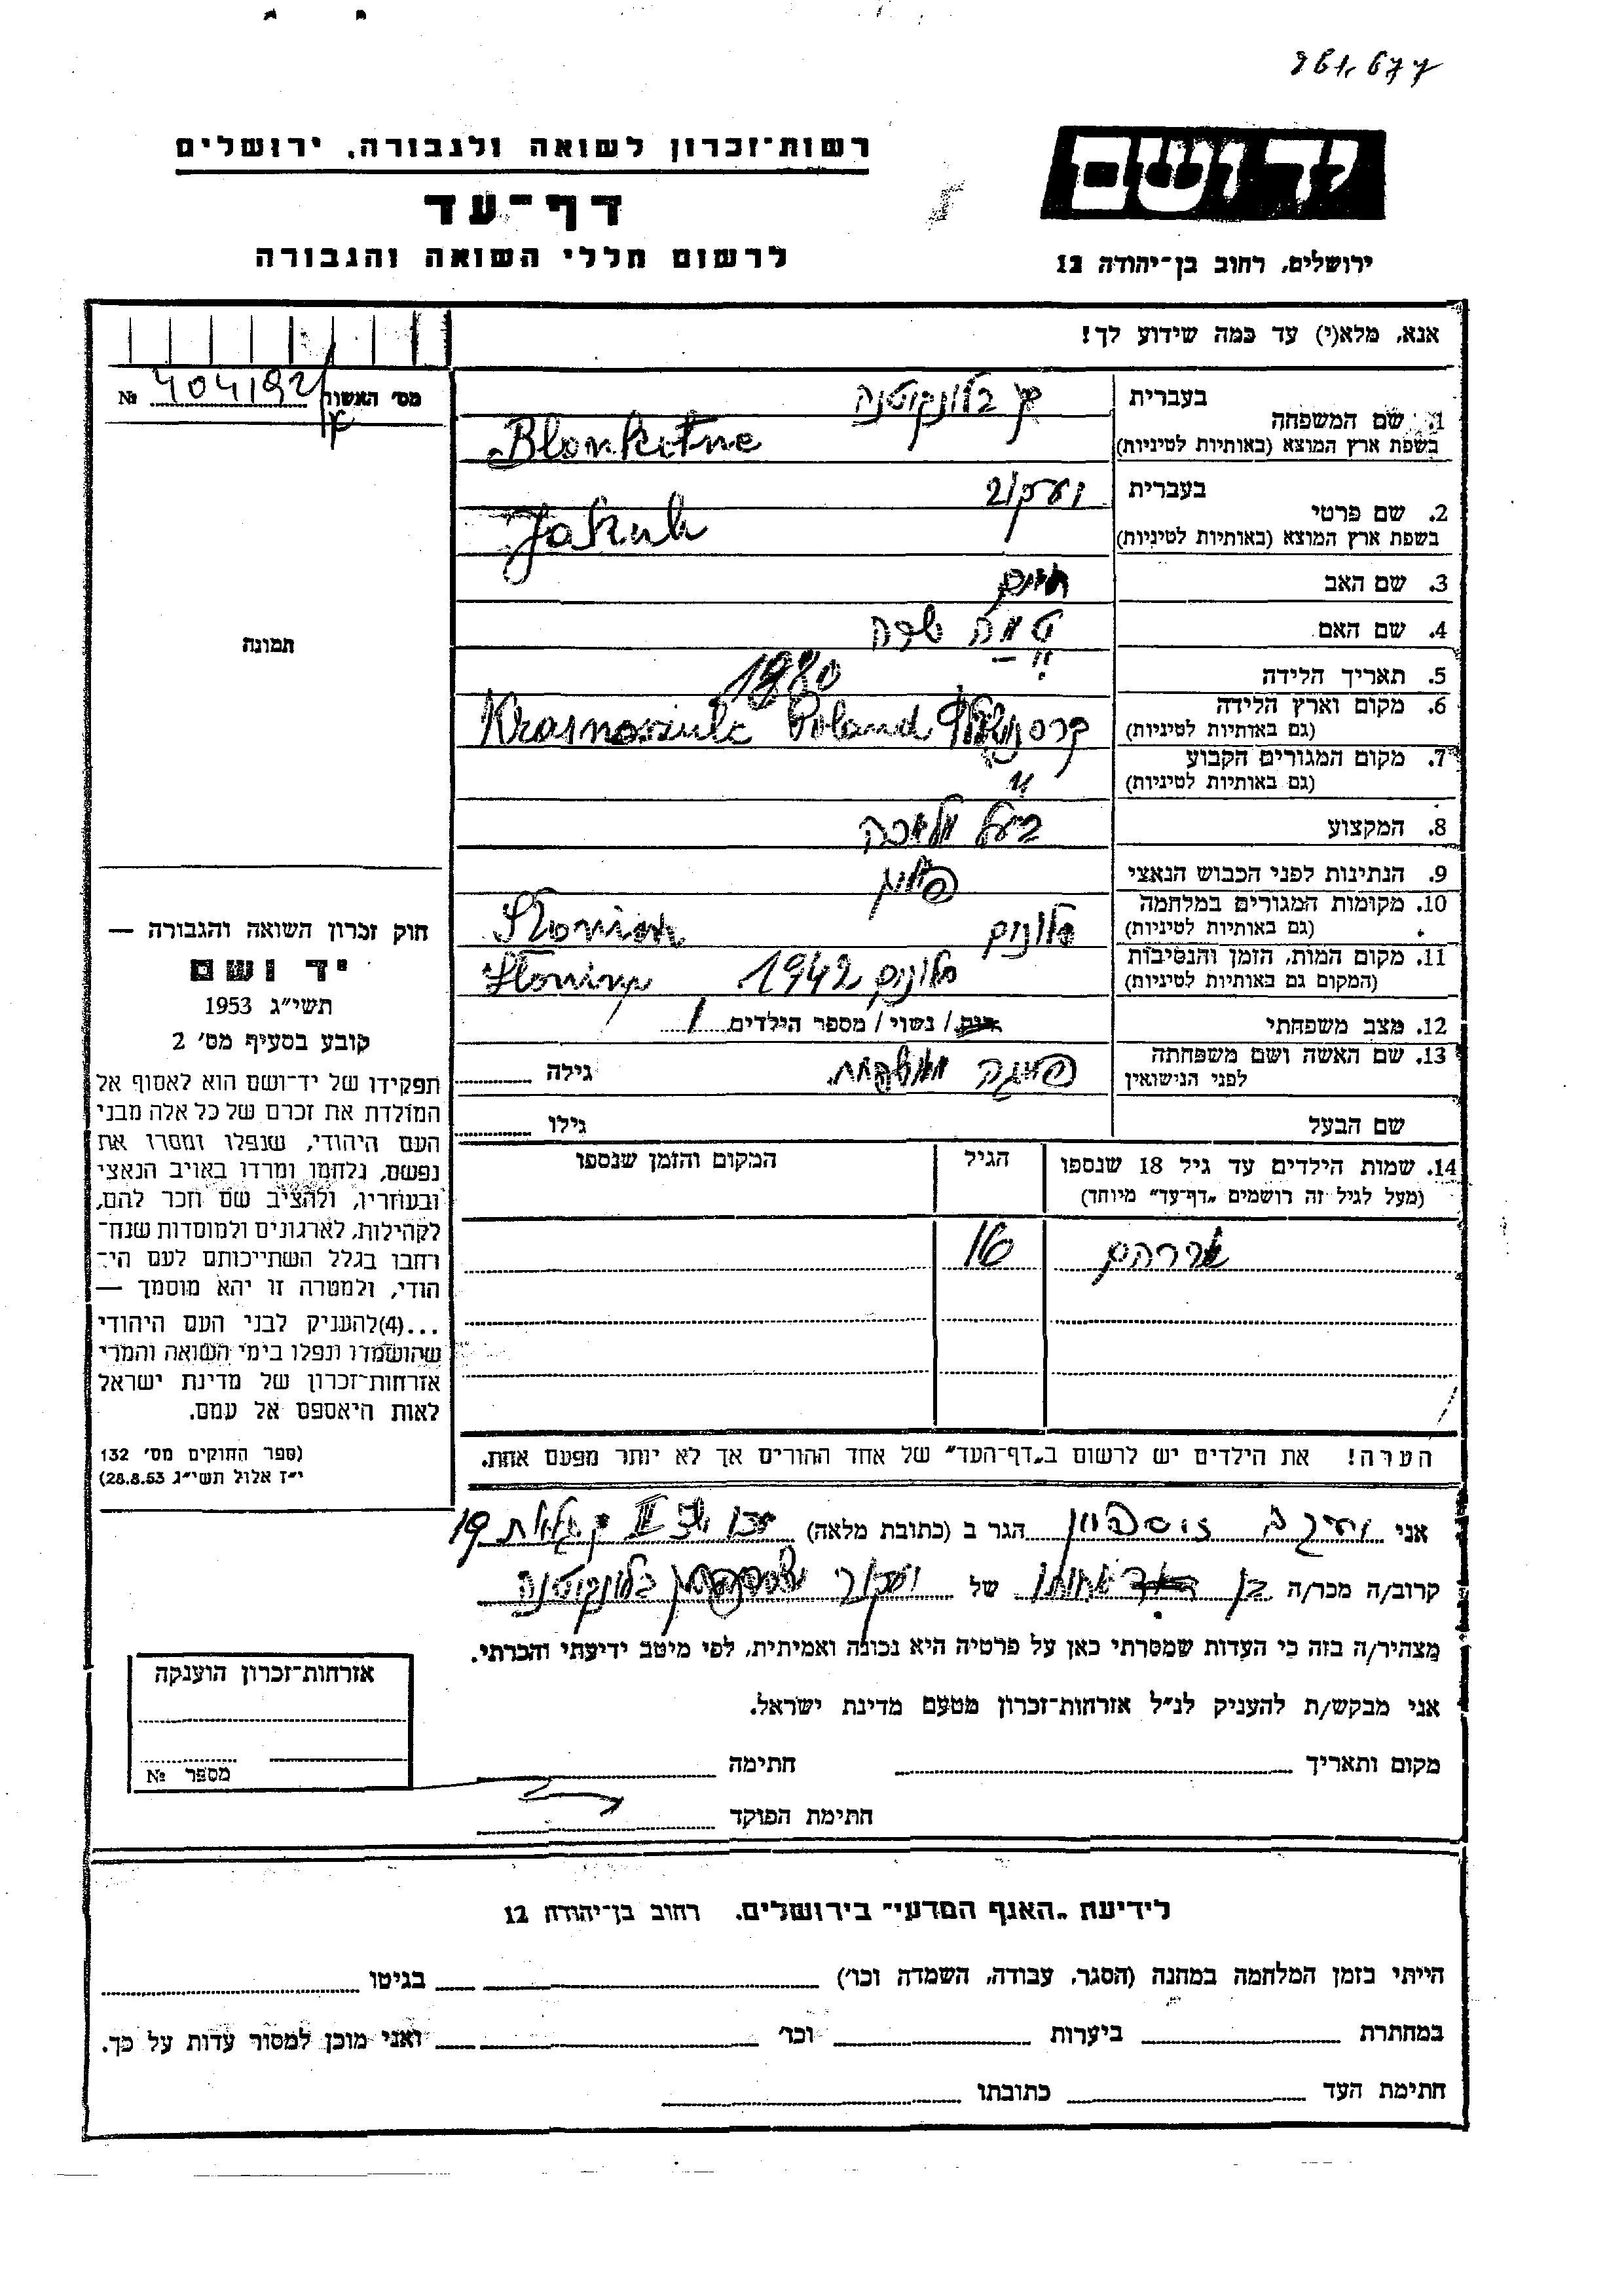 רשות־זכרון לשואה ולגבורה, ירושלים
דף־עד
לרשום חללי השואה והגבורה
יד ושם
ירושלים, רחוב בן־יהודה 12
אנא, מלא(י) עד כמה שידוע לך!
מס' האשור № 404192/
1. שם המשפחה
בעברית בלונקיטנה
בשפת ארץ המוצא (באותיות לטיניות) Blonkitne
2. שם פרטי
בעברית יעקוב
בשפת ארץ המוצא (באותיות לטיניות) Jakub
3. שם האב חיים
4. שם האם שרה
5. תאריך הלידה
6. מקום וארץ הלידה
(גם באותיות לטיניות) Krasnosiulc Poland
7. מקום המגורים הקבוע
(גם באותיות לטיניות) "
8. המקצוע בעל מלאכה
9. הנתינות לפני הכבוש הנאצי פולין
10. מקומות המגורים במלחמה
(גם באותיות לטיניות) סלונים Slonim
11. מקום המות, הזמן והנסיבות
(המקום גם באותיות לטיניות) סלונים 1942 Slonim
12. מצב משפחתי רווק / נשוי / מספר הילדים 1
13. שם האשה ושם משפחתה
לפני הנישואין גילה
שם הבעל גילו
14. שמות הילדים עד גיל 18 שנספו הגיל המקום והזמן שנספו
(מעל לגיל זה רושמים „דף־עד" מיוחד)
אברהם 16
הערה! את הילדים יש לרשום ב„דף־העד" של אחד ההורים אך לא יותר מפעם אחת.
תמונה
חוק זכרון השואה והגבורה —
יד ושם
תשי"ג 1953
קובע בסעיף מס' 2
תפקידו של יד־ושם הוא לאסוף אל
המולדת את זכרם של כל אלה מבני
העם היהודי, שנפלו ומסרו את
נפשם, נלחמו ומרדו באויב הנאצי
ובעוזריו, ולהציב שם וזכר להם,
לקהילות, לארגונים ולמוסדות שנח־
רחבו בגלל השתייכותם לעם הי־
הודי, ולמטרה זו יהא מוסמך —
...(4)להעניק לבני העם היהודי
שהושמדו ונפלו בימי השואה והמרי
אזרחות־זכרון של מדינת ישראל
לאות היאספם אל עמם.
(ספר החוקים מס' 132
י"ז אלול תשי"ג 28.8.53)
אני הגר ב (כתובת מלאה) 19
קרוב/ה מכר/ה בן אחותו של יעקוב בלונקיטנה
מצהיר/ה בזה כי העדות שמסרתי כאן על פרטיה היא נכונה ואמיתית, לפי מיטב ידיעתי והכרתי.
אני מבקש/ת להעניק לנ"ל אזרחות־זכרון מטעם מדינת ישראל.
מקום ותאריך חתימה
חתימת הפוקד
אזרחות־זכרון הוענקה
מספר №
לידיעת „האגף המדעי" בירושלים, רחוב בן־יהודה 12
הייתי בזמן המלחמה במחנה (הסגר, עבודה, השמדה וכו') בגיטו
במחתרת ביערות וכו' ואני מוכן למסור עדות על כך.
חתימת העד כתובתו